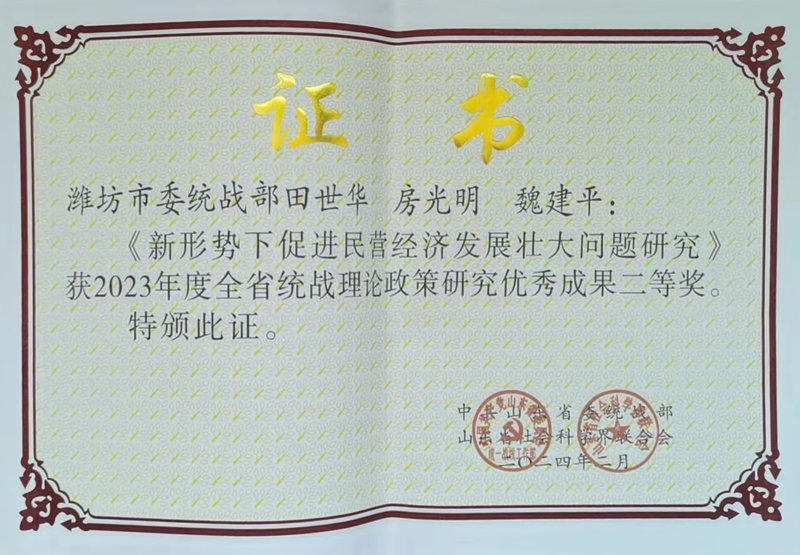 证书
潍坊市委统战部田世华 房光明 魏建平：
《新形势下促进民营经济发展壮大问题研究》
获2023年度全省统战理论政策研究优秀成果二等奖。
特颁此证。
中共山东省委统战部
山东省社会科学界联合会
二〇二四年二月